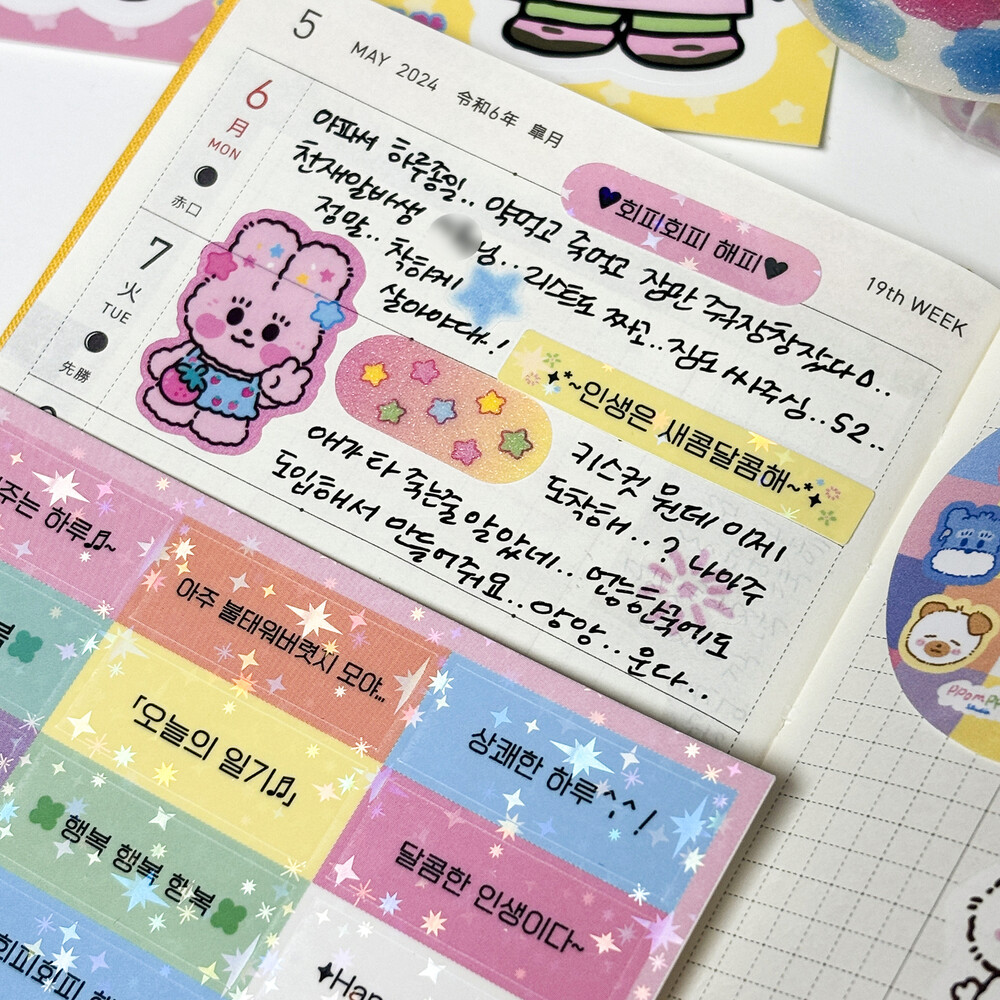 5 MAY 2024 令和6年 皐月
19th WEEK
6
月
MON
赤口
아파서 하루종일.. 약먹고 죽먹고 잠만 주구장창잤다ㅇ..
천재알바생 님.. 리스트도 짜고.. 잠도 싸주심.. S2..
정말.. 착하게
살아야대.!
♥회피회피 해피♥
~인생은 새콤달콤해~
7
火
TUE
先勝
애가 타 죽는줄 알았네.. 얹능한국에도
도입해서 만들어줘요.. 앙앙.. 운다..
키스컷 뭔데 이제
도착해..? 나아주
주는 하루♫~
복
아주 불태워버렷지 모야...
「오늘의 일기♫」
행복 행복 항복
회피회피 해
상쾌한 하루^^!
달콤한 인생이다~
✦Hap
PPOMPPI
studio